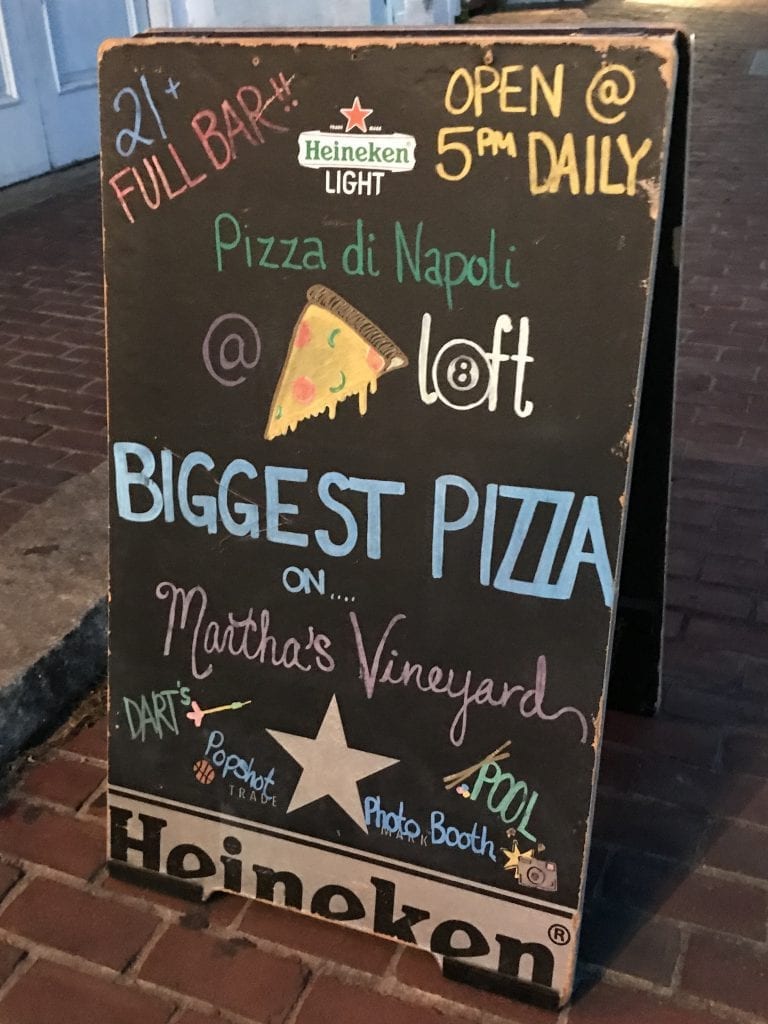 21+
FULL BAR!!
TRADE MARK
Heineken
LIGHT
OPEN @
5PM DAILY
Pizza di Napoli
@ loft
8
BIGGEST PIZZA
ON....
Martha's Vineyard
DART'S
Popshot
TRADE
POOL
Photo Booth
MARK
Heineken®